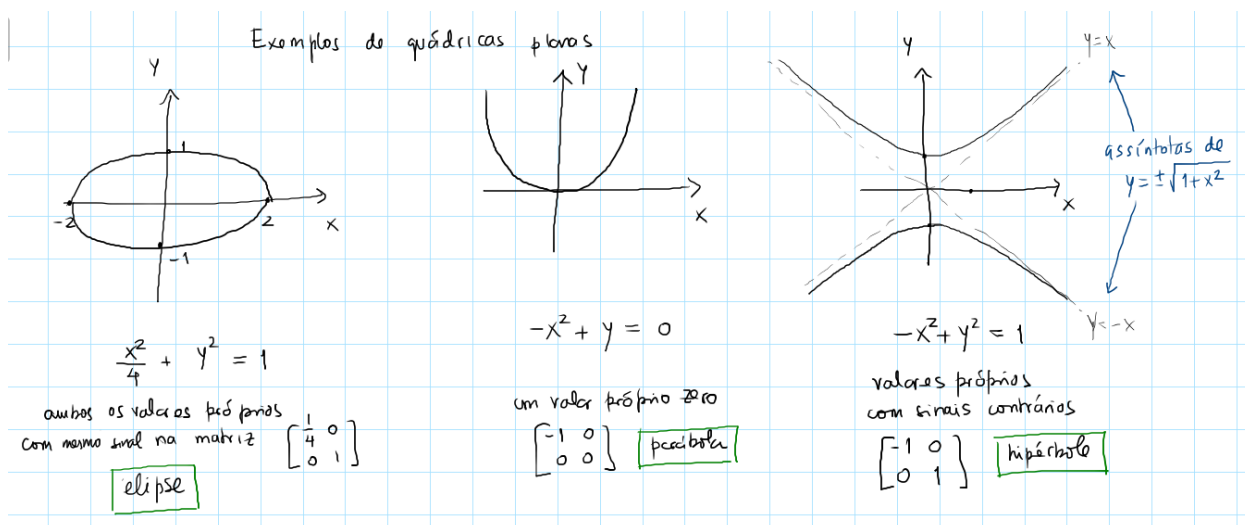 Exemplos de quádricas planas
Y
1
-2
2
X
-1
x²/4 + y² = 1
ambos os valores próprios
com mesmo sinal na matriz [1/4 0; 0 1]
elipse
Y
X
-x² + y = 0
um valor próprio zero
[-1 0; 0 0]
parábola
Y
y=x
assíntotas de
y = ±√(1+x²)
X
y=-x
-x² + y² = 1
valores próprios
com sinais contrários
[-1 0; 0 1]
hipérbole